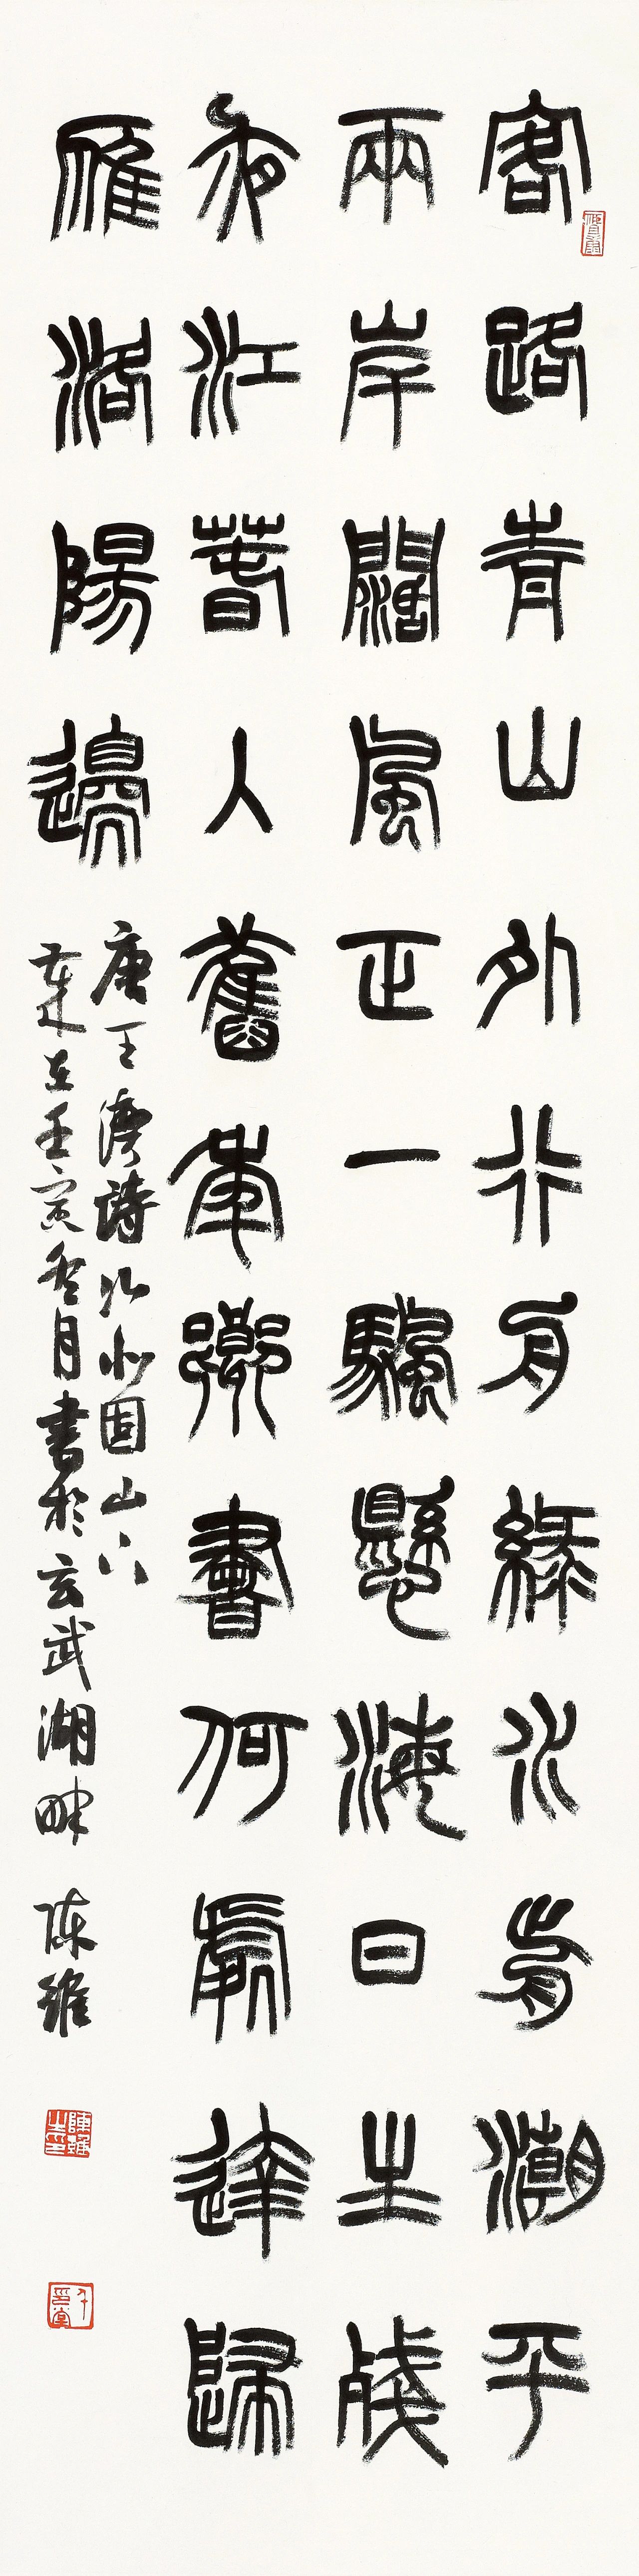 客路青山外行舟綠水前潮平
兩岸闊風正一颿懸海日生殘
夜江春人舊年鄉書何處達歸
雁洛陽邊
唐王灣詩次北固山下
歲在壬寅冬月書於玄武湖畔 陳